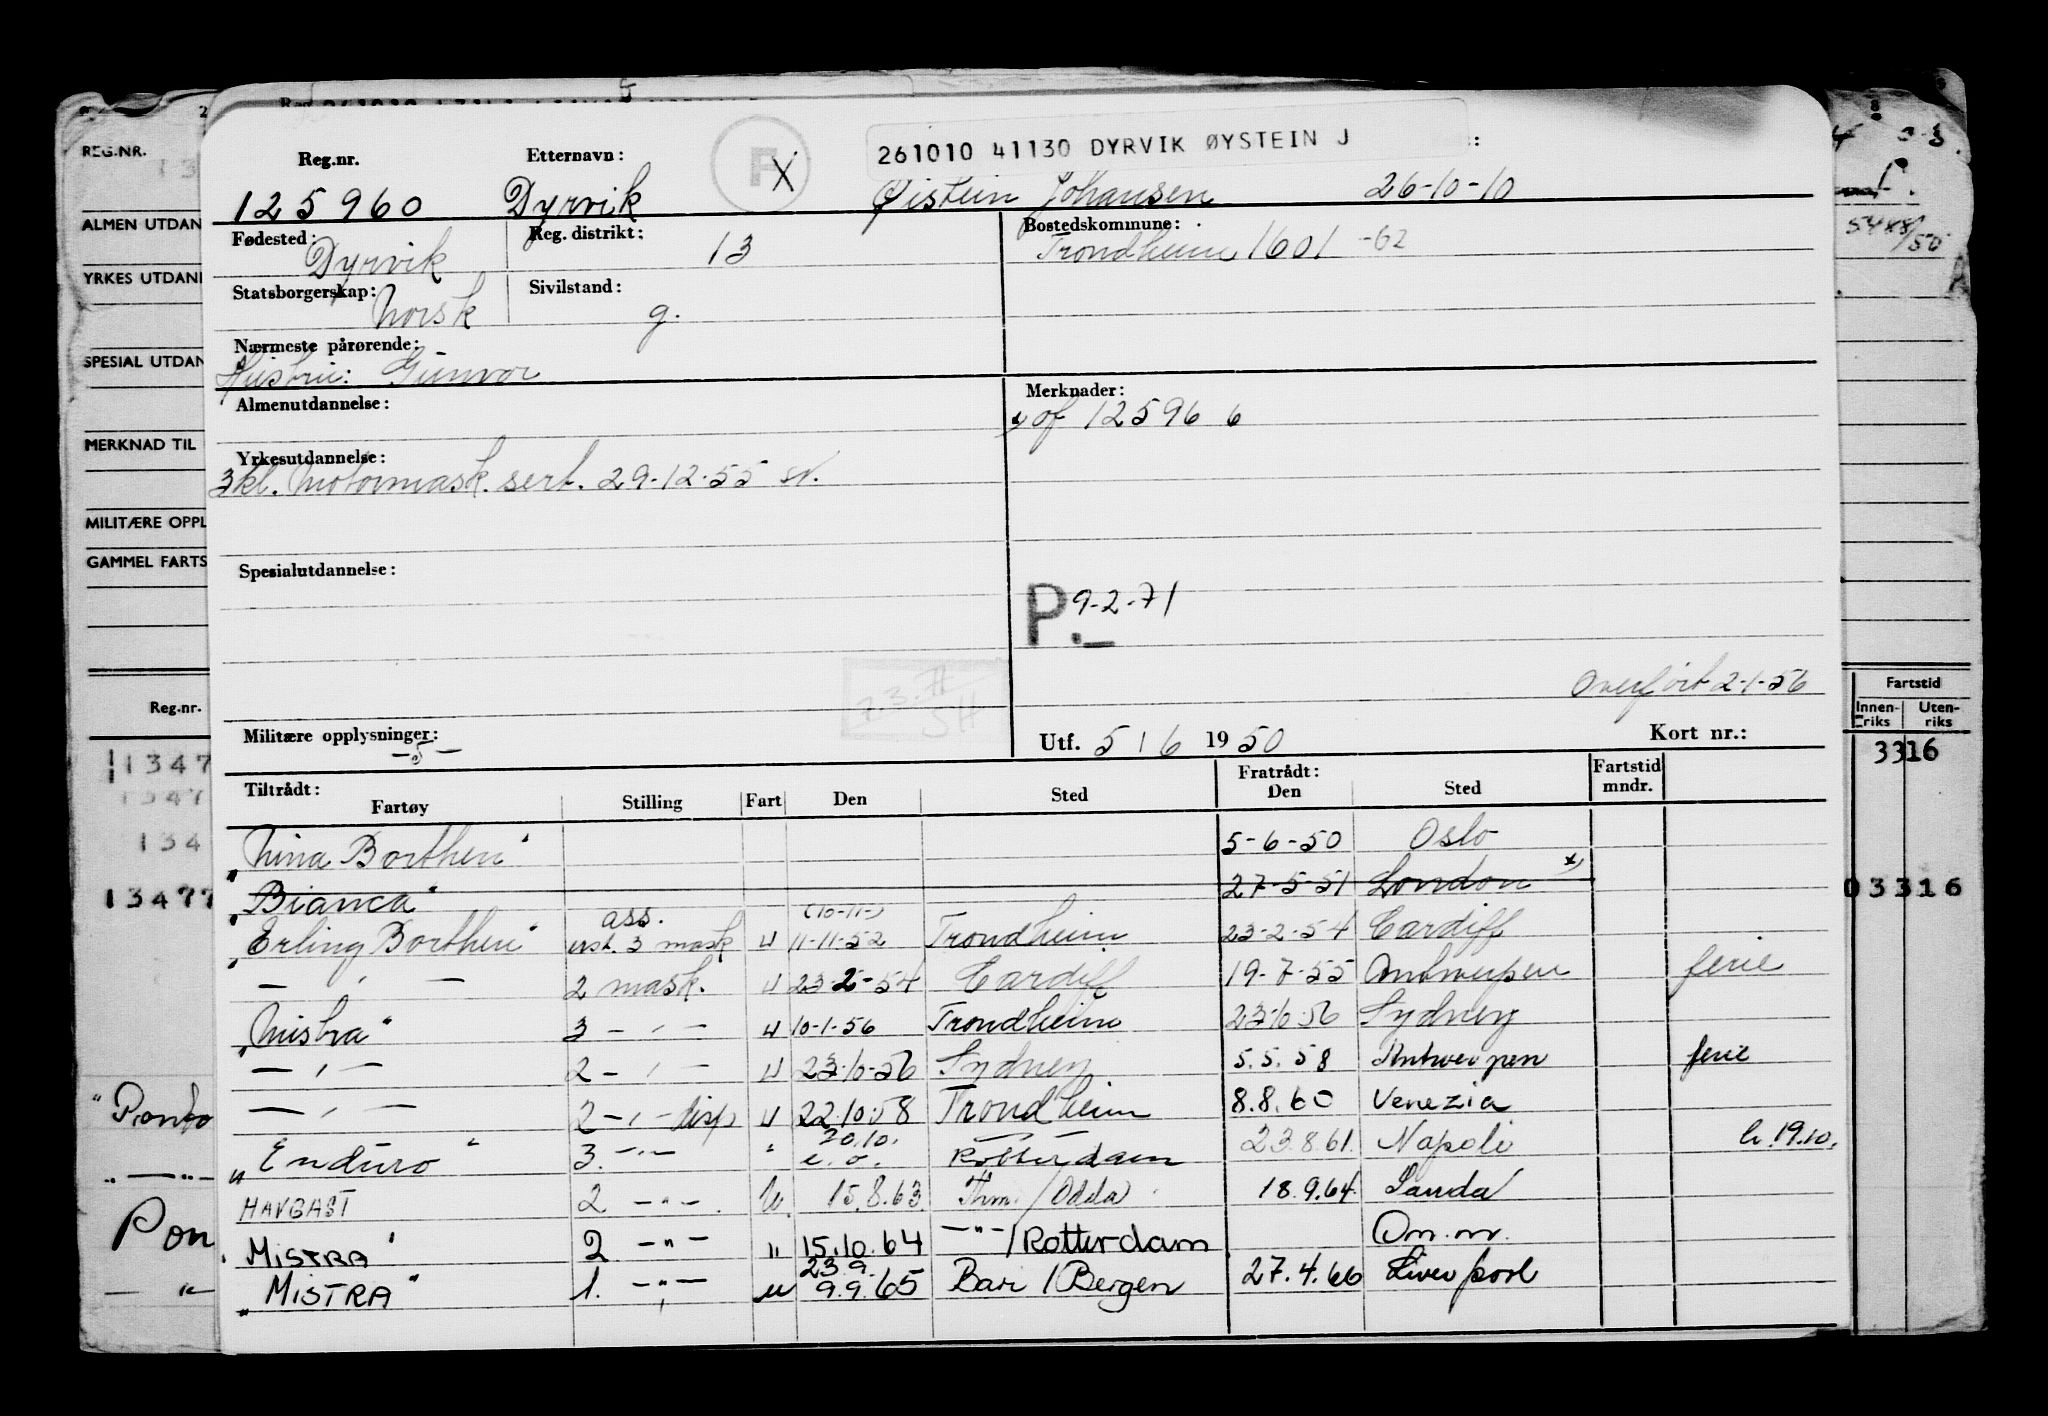 REG.NR.
ALMEN UTDAN
YRKES UTDAN
SPESIAL UTDAN
MERKNAD TIL
MILITÆRE OPPL
GAMMEL FARTS
Reg.nr.
1347
1347
134
13477
"Ponto
Pon
Reg.nr. Etternavn: F X 261010 41130 DYRVIK ØYSTEIN J
125960 Dyrvik Øistein Johansen 26-10-10
Fødested: Reg. distrikt: Bostedskommune:
Dyrvik 13 Trondheim 1601 -62
Statsborgerskap: Sivilstand:
Norsk g.
Nærmeste pårørende:
Hustru: Gunvor
Almenutdannelse: Merknader:
x) of 125966
Yrkesutdannelse:
3kl. Motormask. sert. 29-12-55
Spesialutdannelse:
P.- 9-2-71
Overført 2-1-56
Militære opplysninger: Utf. 5 / 6 1950 Kort nr.:
Tiltrådt: Fratrådt: Fartstid
Fartøy Stilling Fart Den Sted Den Sted mndr.
"Nina Borthen" 5-6-50 Oslo
"Bianca" 27-5-51 London x)
"Erling Borthen" ass. 3 mask u (10-11-) 11-11-52 Trondheim 23-2-54 Cardiff
— " — 2 mask. u 23-2-54 Cardiff 19-7-55 Antwerpen ferie
"Mistra" 3 — " — u 10-1-56 Trondheim 23-10-56 Sydney
— " — 2 — " — u 23-10-56 Sydney 5.5.58 Antwerpen ferie
— " — 2 — " — disp u 22.10.58 Trondheim 8.8.60 Venezia
"Enduro" 3. — " — " 20.10. e.o. Rotterdam 23.8.61 Napoli h. 19.10.
HAVGAST 2 — " — u. 15.8.63 Thm. / Odda 18.9.64. Sauda
"MISTRA" 2 — " — " 15.10.64 — " — / Rotterdam Om.nr.
"MISTRA" 1. — " — u 23.9. 9.9.65 Bari / Bergen 27.4.66 Liverpool
5488/50
Fartstid
Innenriks Utenriks
3316
03316